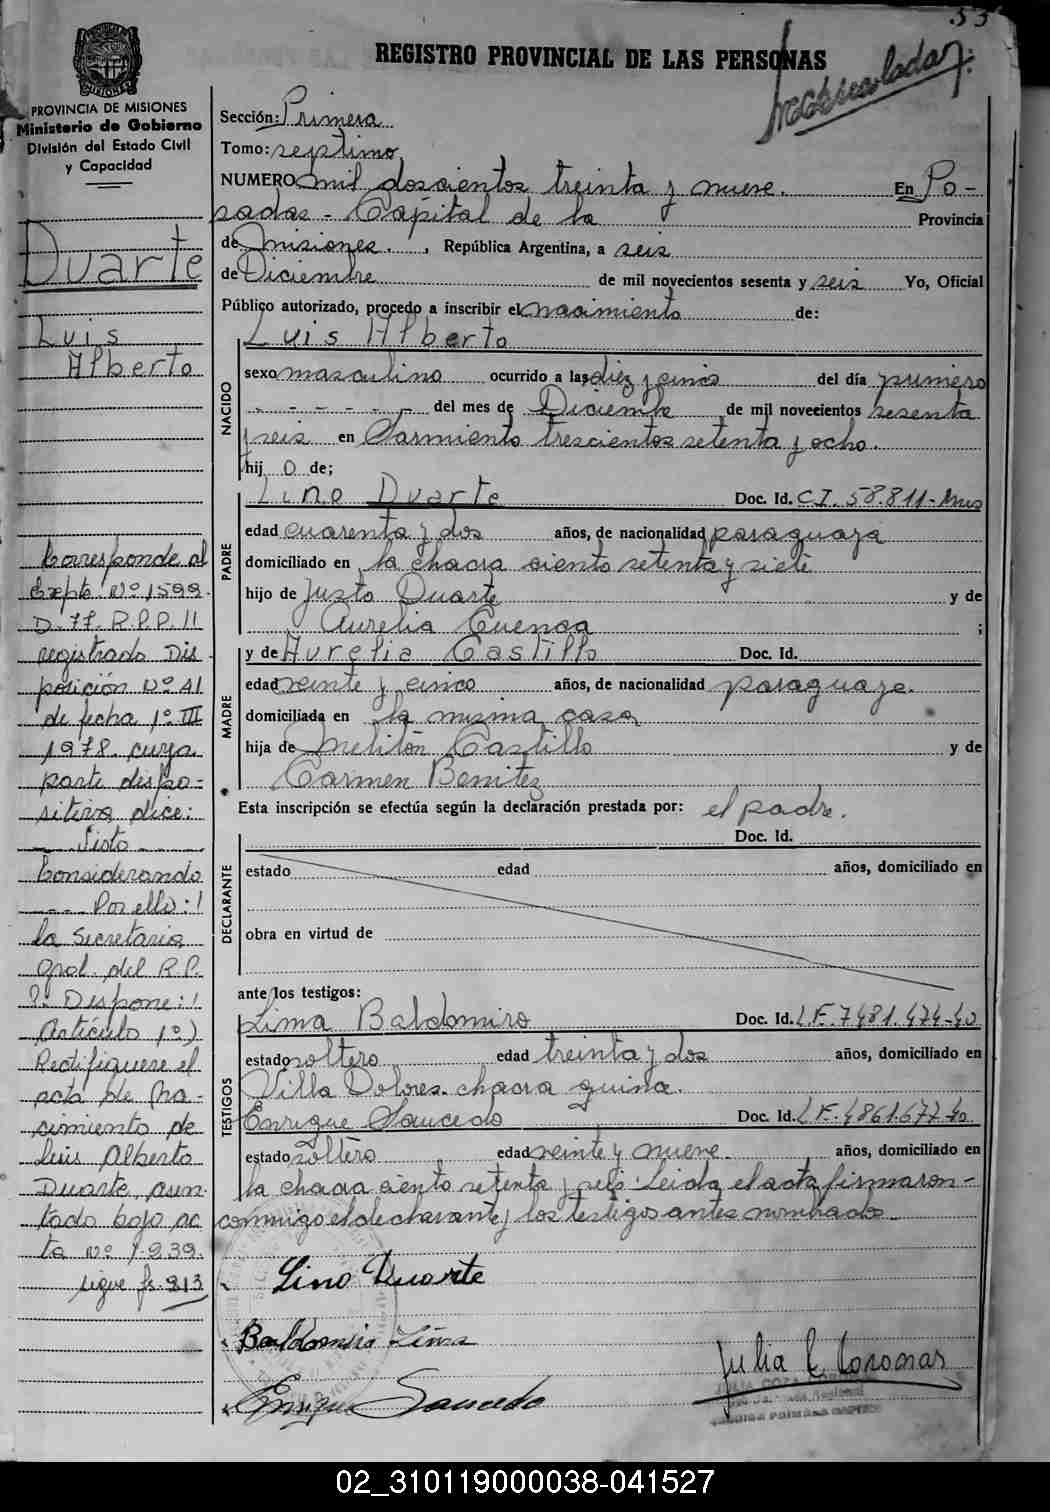 33
REGISTRO PROVINCIAL DE LAS PERSONAS
PROVINCIA DE MISIONES
Ministerio de Gobierno
División del Estado Civil
y Capacidad
Duarte
Luis
Alberto
Corresponde al
Expte. Nº 1599.
D-77-R.P.P.//
registrado Dis-
posición Nº 41
de fecha 1º III
1978. cuya
parte dispo-
sitiva dice:
Visto
Considerando
Por ello:!
la Secretaria
Gral. del R.P.
P. Dispone:!
Artículo 1º)
Rectifiquese el
acta de na-
cimiento de
Luis Alberto
Duarte, asen-
tado bajo ac
ta Nº 1.239.
sigue fs. 213
Sección: Primera
Tomo: septimo
NUMERO mil doscientos treinta y nueve. En Po-
sadas - Capital de la Provincia
de Misiones. , República Argentina, a seis
de Diciembre de mil novecientos sesenta y seis Yo, Oficial
Público autorizado, procedo a inscribir el nacimiento de:
Luis Alberto
NACIDO
sexo masculino ocurrido a las diez y cinco del día primero
- - - - - - del mes de Diciembre de mil novecientos sesenta
y seis en Sarmiento trescientos setenta y ocho.
hij o de;
PADRE
Lino Duarte Doc. Id. C.I. 58.811-Mnes
edad cuarenta y dos años, de nacionalidad paraguaya
domiciliado en la chacra ciento setenta y siete
hijo de Justo Duarte y de
Aurelia Cuenca ;
MADRE
y de Aurelia Castillo Doc. Id.
edad veinte y cinco años, de nacionalidad paraguaya.
domiciliada en la misma casa
hija de Melitón Castillo y de
Carmen Benitez
Esta inscripción se efectúa según la declaración prestada por: el padre.
DECLARANTE
Doc. Id.
estado edad años, domiciliado en
obra en virtud de
ante los testigos:
TESTIGOS
Lima Baldomiro Doc. Id. L.E. 7481.474-40
estado soltero edad treinta y dos años, domiciliado en
Villa Dolores. chacra quina.
Enrique Saucedo Doc. Id. L.E. 4861.677-40
estado soltero edad veinte y nueve. años, domiciliado en
la chacra ciento setenta y seis. Leida el acta firmaron-
conmigo el declarante y los testigos antes nombrados.
Lino Duarte
Baldomiro Lima
Julia C. Coronas
Enrique Saucedo
02_310119000038-041527